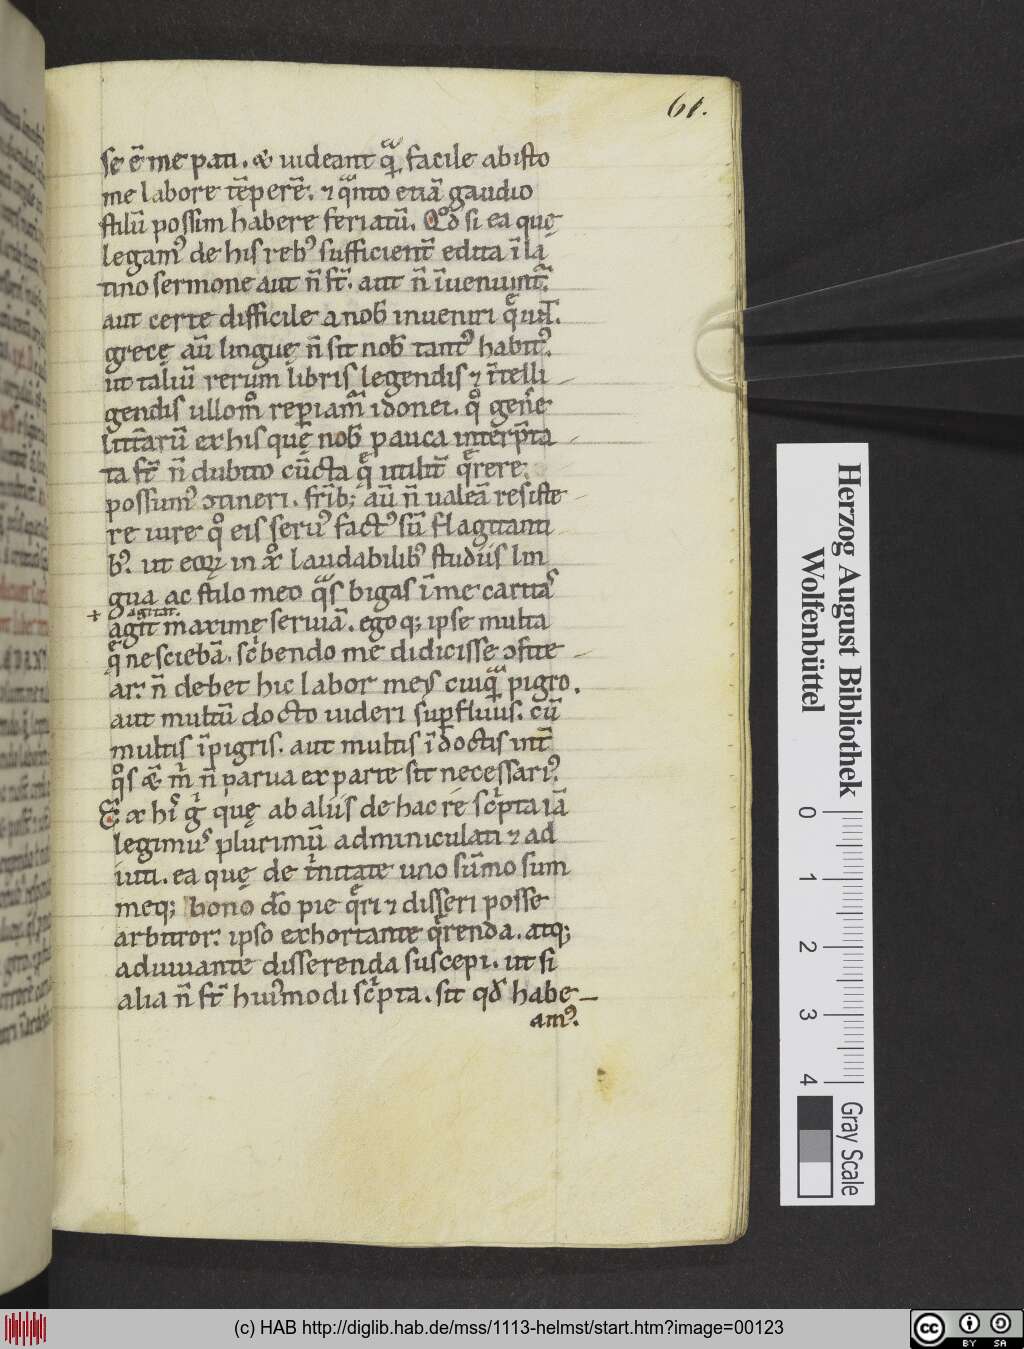 61.
se ē me pati. & uideant q̄ᵃ facile ab isto
me labore tēperē. ⁊ qᵃnto etiā gaudio
stilū possim habere feriatū. Qᵒd si ea quę
legam⁹ de his reb⁹ sufficient̄ edita ī la
tino sermone aut n̄ st̄. aut n̄ īueniunt̄.
aut certe difficile a nob̄ inueniri queunt.
grecę aū linguę n̄ sit nob̄ tant⁹ habit⁹.
ut taliū rerum libris legendis ⁊ ītelli
gendis ullom̊ reperiam̄ idonei. qᵒ genere
litt̄arū ex his quę nob̄ pauca interp̄ta
ta st̄ n̄ dubito cūcta q̨ utilit̄ querere
possum⁹ ɔtineri. fr̄ib; aū n̄ ualeā resiste
re iure qᵒ eis seru⁹ fact⁹ sū flagitanti
b⁹. ut eoꝝ in xᵒ laudabilib⁹ studiis lin
gua ac stilo meo qᵃs bigas ī me caritas
+ agitat.
agit maximę seruiā. egoq; ipse multa
quę nesciebā. sc̄bendo me didicisse ɔfite
ar. n̄ debet hic labor meus cuiqᵃ pigro.
aut multū docto uideri sup̄fluus. cū
multis īpigris. aut multis īdoctis int̄
qᵒs &̄ m̄ n̄ parua ex parte sit necessari⁹.
Ex hiˢ g̊ quę ab aliis de hac re sc̄pta iā
legimus plurimū adminiculati ⁊ ad
iuti. ea quę de t̄nitate uno sūmo sum
meq; bono do pie queri ⁊ disseri posse
arbitror. ipso exhortante querenda. atq;
adiuuante disserenda suscepi. ut si
alia n̄ st̄ hui⁹modi sc̄pta. sit qđ habe
am⁹.
Herzog August Bibliothek
Wolfenbüttel
0 1 2 3 4
Gray Scale
(c) HAB http://diglib.hab.de/mss/1113-helmst/start.htm?image=00123
cc BY SA